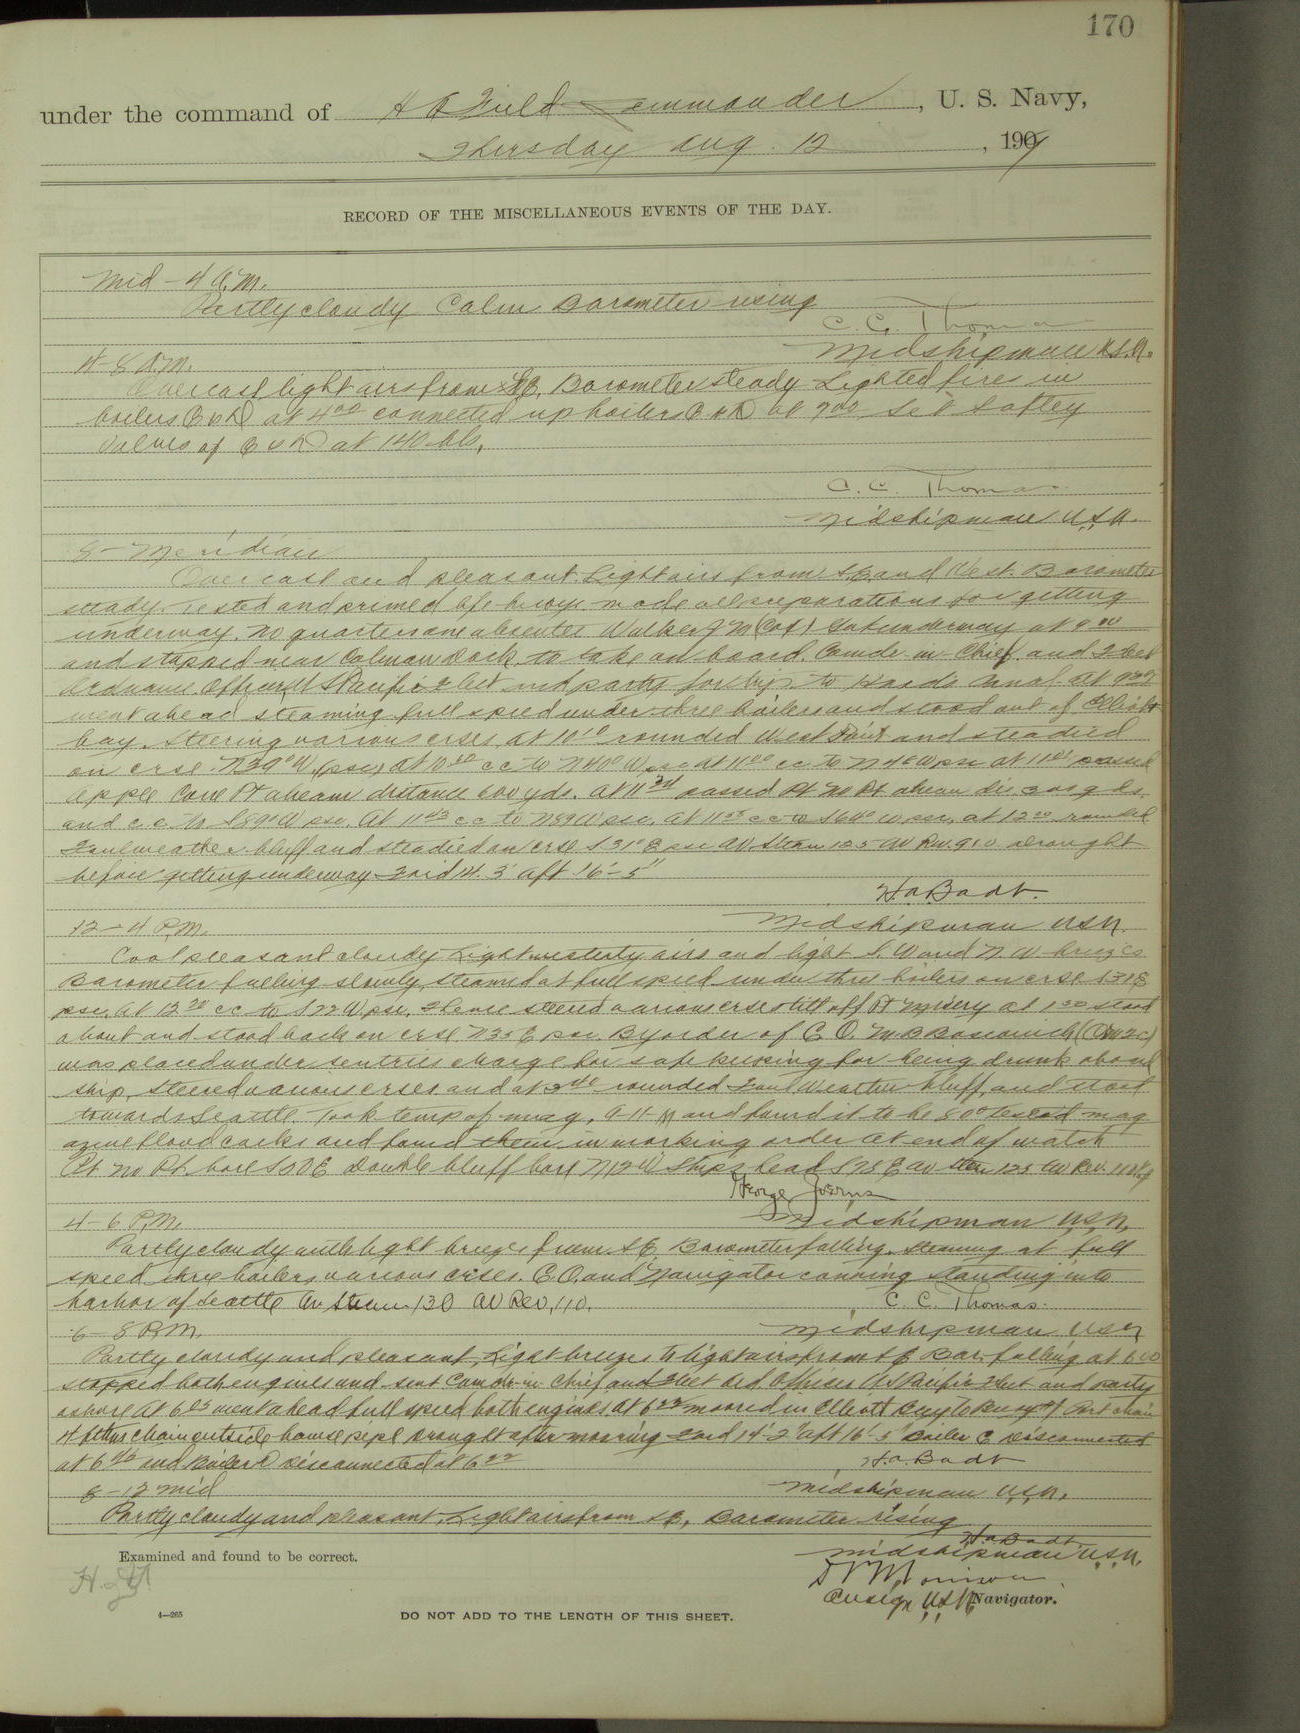 170
under the command of H A Field Commander, U. S. Navy,
Thursday Aug. 12, 1909
RECORD OF THE MISCELLANEOUS EVENTS OF THE DAY.
Mid - 4 A.M.
Partly cloudy Calm Barometer rising
C. C. Thomas
Midshipman U.S.N.
4-8 A.M.
Overcast light airs from SE. Barometer steady Lighted fires in
boilers C & D at 4 00 connected up boilers C & D at 7 00 Set Saftey
valves of C & D at 140 lbs.
C. C. Thomas
Midshipman U.S.N.
8- Meridian
Overcast and pleasant. Light airs from S.E. and West. Barometer
steady. Tested and primed life buoys made all preparations for getting
underway. No quarters one absentee Walker J M (Cox) Got underway at 9 00
and stopped near Colman Dock to take on board. Comdr in Chief. and Fleet
Ordnance Officer U S Pacific Fleet and party for trip to Hoods Canal at
went ahead steaming full speed under three boilers and stood out of Elliott
bay. Steering various crses, at 10 10 rounded West Point and steadied
on crse N 39° W (psc) at 10 c c to N 40° W psc at 11 00 cc to N 48 W psc at 11 passed
Apple Cove Pt abeam distance 600 yds. at 11 24 passed Pt No Pt abeam dis yds.
and c c to S 89° W psc. At 11 43 c c to N 89 W psc, at 11 55 c c to S 64° W psc, at 12 00 rounded
Foulweather bluff and steadied on crse S 31° E psc av. Steam 125 av Rev. 91.0 drought
before getting underway Ford 14. 3' aft 16'-5"
H. a. Badt.
Midshipman USN.
12-4 P.M.
Cool pleasant cloudy Light westerly airs and light S. W and N. W breezes
Barometer falling slowly, steamed at full speed under three boilers on crse S 31 E
psc. At 12 20 c c to S 22 W psc, thence steered various crses till off Pt Misery at 1 30 stood
about and stood back on crse N 35 E psc. By order of C. O. M. B (OM2c)
was placed under sentries charge for safe keeping for being drunk aboard
ship, steered various crses and at 3 40 rounded Foul Weather bluff, and stood
towards Seattle. Took temp of mag. A-11-M and found it to be 80° Tested mag
azine flood cocks and found them in working order at end of watch
Pt No Pt. bore S 50 E Double bluff bore N 12 W Ships head S 75 E av stea 125 av Rev. 110
George Joerns
Midshipman U.S.N.
4-6 P.M.
Partly cloudy with light breeze from SE. Barometer falling. Steaming at full
speed three boilers, various crses. C.O. and Navigator conning standing into
harbor of Seattle Av. Steam 130 av Rev. 110.
C. C. Thomas.
Midshipman USN
6-8 P.M.
Partly cloudy and pleasant, Light breezes to light airs from SE Bar. falling at 6 00
stopped both engines and sent Comdr in Chief and Fleet Ord Officer U S Pacific Fleet and party
ashore At 6 05 went ahead full speed both engines, at 6 22 moored in Elliott Bay to Buoy Port chain
4 fathms chain outside hawse pipe Drought after mooring Ford 14'-2" aft 16'-5" Boiler C Disconnected
at 6 and Boiler D Disconnected at 6 22
H. a. Badt
Midshipman U.S.N.
8-12 Mid
Partly cloudy and pleasant, Light airs from SE, Barometer rising
H. a. Badt
Midshipman U.S.N.
Examined and found to be correct.
Morrison
Ensign U S N Navigator.
4—265
DO NOT ADD TO THE LENGTH OF THIS SHEET.